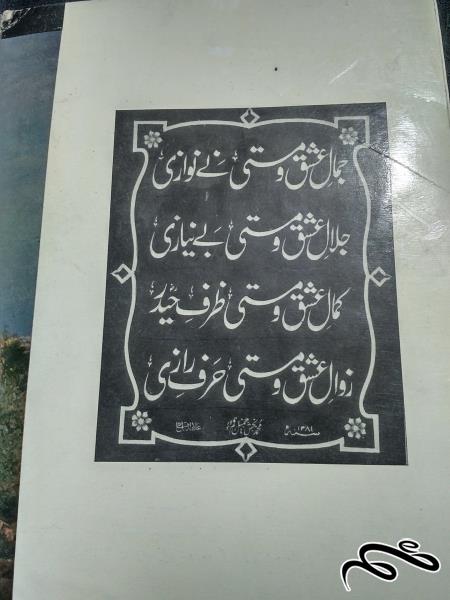 جمالِ عشق و مستی نَے نوازی
جلالِ عشق و مستی بے نیازی
کمالِ عشق و مستی ظرفِ حیدرؓ
زوالِ عشق و مستی حرفِ رازی
۱۳۸۱